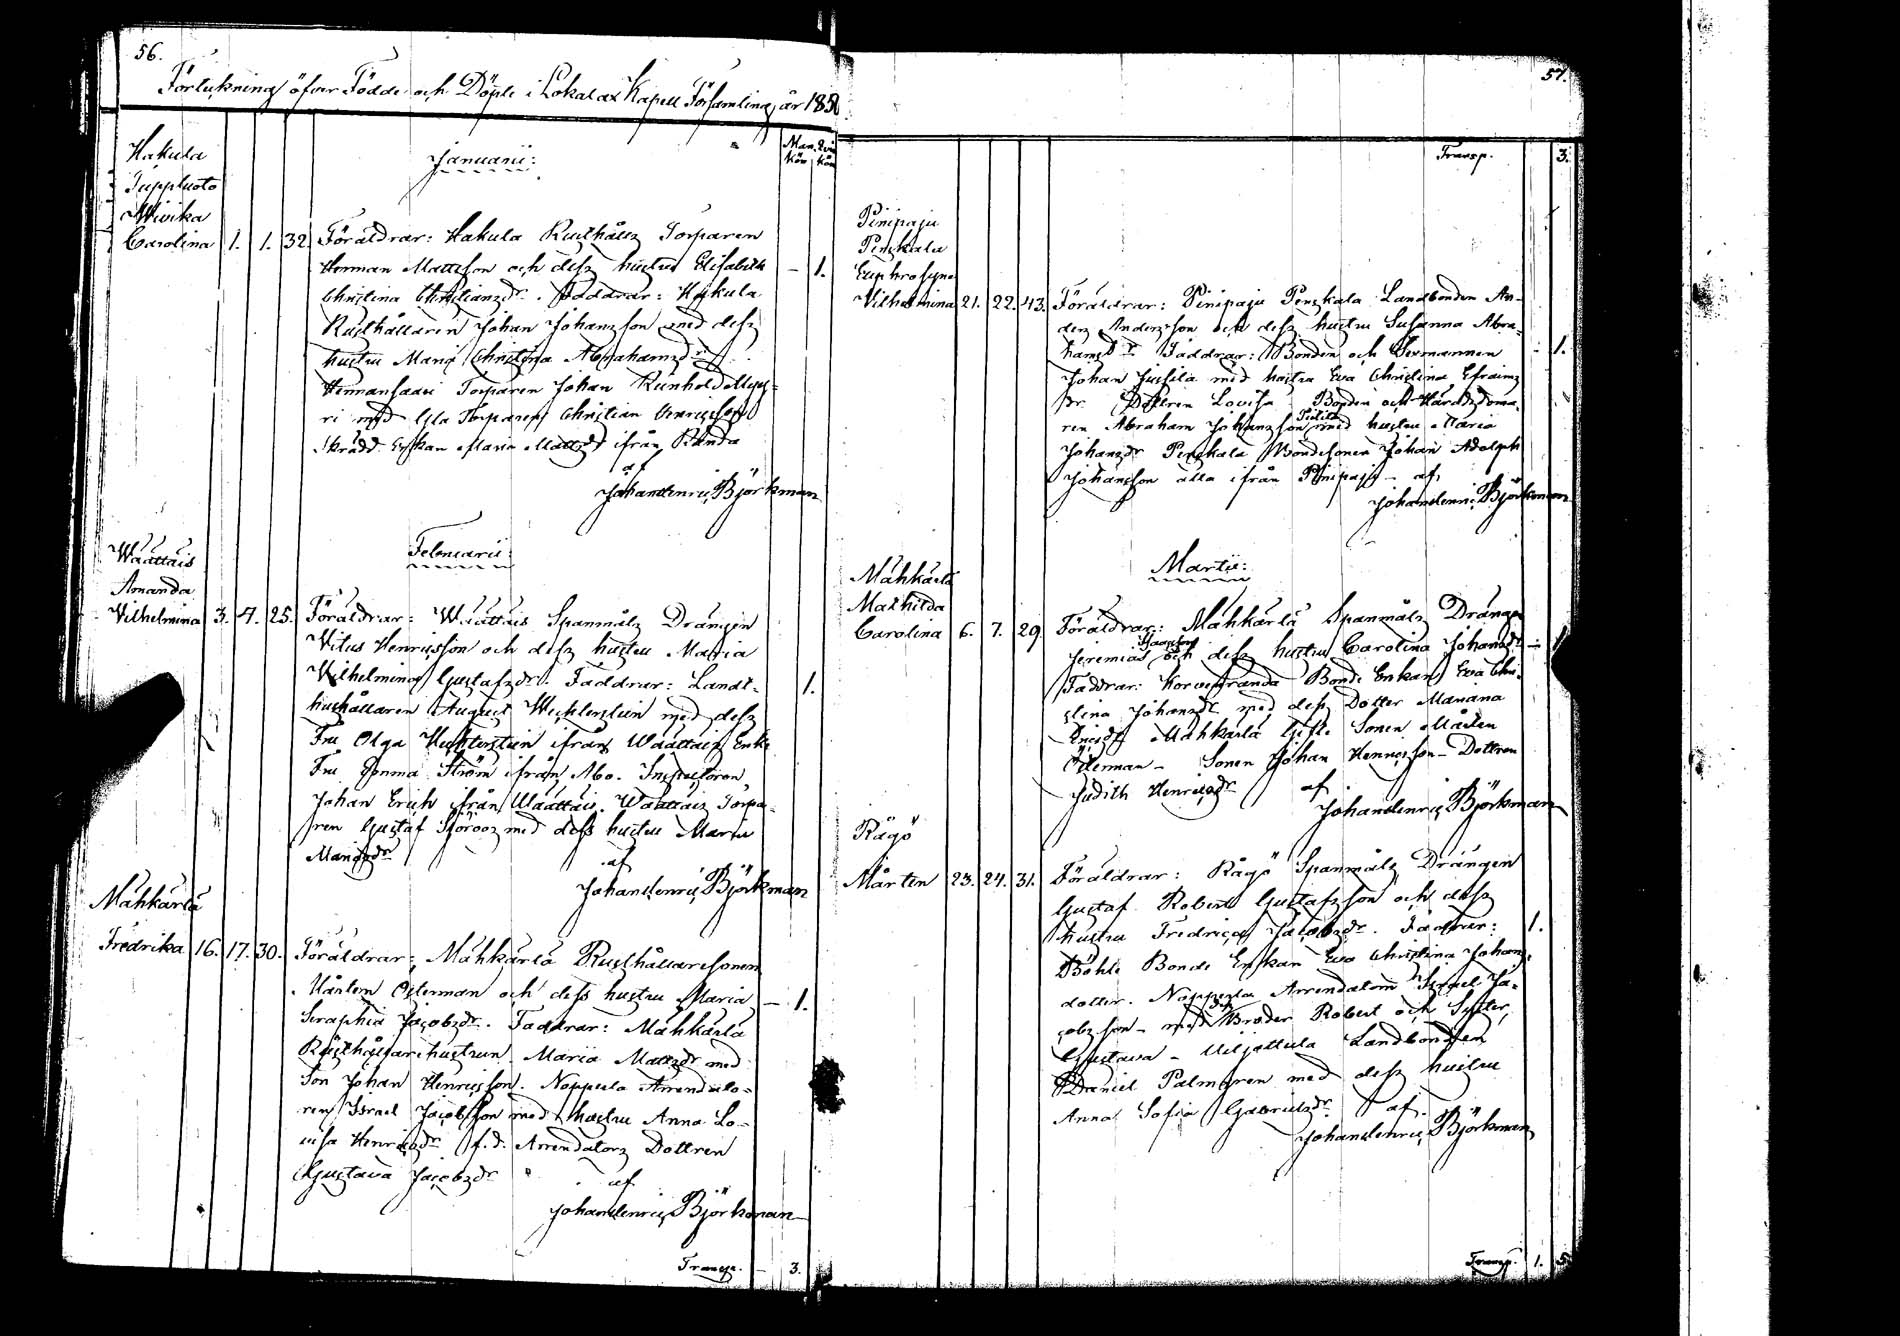 56.
Förteckning öfver Födde och Döpte i Lokalax Kapell Församling år 1850
Man Kön Qvin Kön
Januarii:
Hakula
Tuppluoto
Wivika
Carolina 1. 1. 32. Föräldrar: Hakula Rusthålls Torparen
Herman Mattsson och dess hustru Elisabeth
Christina Christiansdr. Faddrar: Hakula - 1.
Rusthållaren Johan Johansson med dess
hustru Maria Christina Abrahamsdr
Hermansaari Torparen Johan Reinhold
ri med Torparen Christian Henricsson
Skrädd. Enkan Maria Mattsdr ifrån Randa
af
Johan Henric Björkman
Februarii:
Waattais
Amanda
Vilhelmina 3. 4. 25. Föräldrar: Waattais Spanmåls Drängen
Vitus Henricsson och dess hustru Maria
Vilhelmina Gustafsdr. Faddrar: Landt- 1.
hushållaren August Wechterstein med dess
Fru Olga Wechterstein ifrån Waattais Enke
Fru Gemma Ström ifrån Åbo. Inspectoren
Johan Erich ifrån Waattais. Waattais Torpa-
ren Gustaf Sjöroos med dess hustru Maria
Mariasdr
af
Johan Henric Björkman
Mähkärlä
Fredrika 16. 17. 30. Föräldrar: Mähkärlä Rusthållaresonen
Mårten Österman och dess hustru Maria - 1.
Seraphia Jacobsdr. Faddrar: Mähkärlä
Rusthållarehustrun Maria Mattsdr med
Son Johan Henricsson. Nopperla Arrendato-
ren Israel Jacobsson med hustru Anna Lo-
uisa Henricsdr f.d. Arrendators Dottren
Gustava Jacobsdr
af
Johan Henric Björkman
Transp. - 3.
57.
Transp. 3.
Pinipaju
Penskala
Euphrosyne
Vilhelmina 21. 22. 43. Föräldrar: Pinipaju Penskala Landbonden An-
ders Andersson och dess hustru Susanna Abra-
hamsdr Faddrar: Bonden och Sexmannen - 1.
Johan Jussila med hustru Eva Christina Efraims
dr Dottren Lovisa Bonden och Häradsdoma-
ren Abraham Johansson med hustru Maria
Johansdr Penskala Bondesonen Johan Adolph
Johansson alla ifrån Pinipaju - af
Johan Henric Björkman
Martii:
Mähkärlä
Mathilda
Carolina 6. 7. 29. Föräldrar: Mähkärlä Spanmåls Drängen
Jeremias och dess hustru Carolina Johansdr - 1.
Faddrar: Korvenranda Bonde Enkan Eva Chri-
stina Johansdr med dess Dotter Mariana
Ericsdr Mähkärlä Gifte Sonen Mårten
Österman - Sonen Johan Henricsson - Dottren
Judith Henricsdr af
Johan Henric Björkman
Rågö
Mårten 23. 24. 31. Föräldrar: Rågö Spanmåls Drängen
Gustaf Robert Gustafsson och dess
hustru Fredrica Jacobsdr. Faddrar: 1.
Böhle Bonde Enkan Eva Christina Johans
dotter. Nopperla Arrendatorn Israel Ja-
cobsson - med Broder Robert och Syster
Gustava - Landbonden
Daniel Palmgren med dess hustru
Anna Sofia Gabrielsdr af
Johan Henric Björkman
Transp. 1. 5.